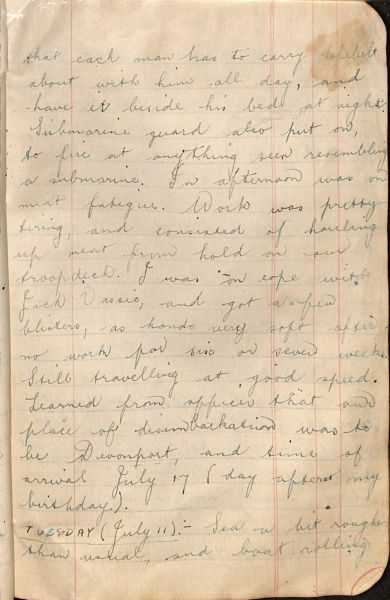 that each man has to carry lifebelt
about with him all day, and
have it beside his bed at night.
Submarine guard also put on,
to fire at anything seen resembling
a submarine. In afternoon was on
meat fatigue. Work was pretty
tiring, and consisted of hauling
up meat from hold on our
troopdeck. I was on rope with
Jack Vassie, and got a few
blisters, as hands very soft after
no work for six or seven weeks
Still travelling at good speed.
Learned from officer that our
place of disembarkation was to
be Devonport, and time of
arrival July 17 (day after my
birthday).
TUESDAY (July 11):- Sea a bit rougher
than usual, and boat rolling